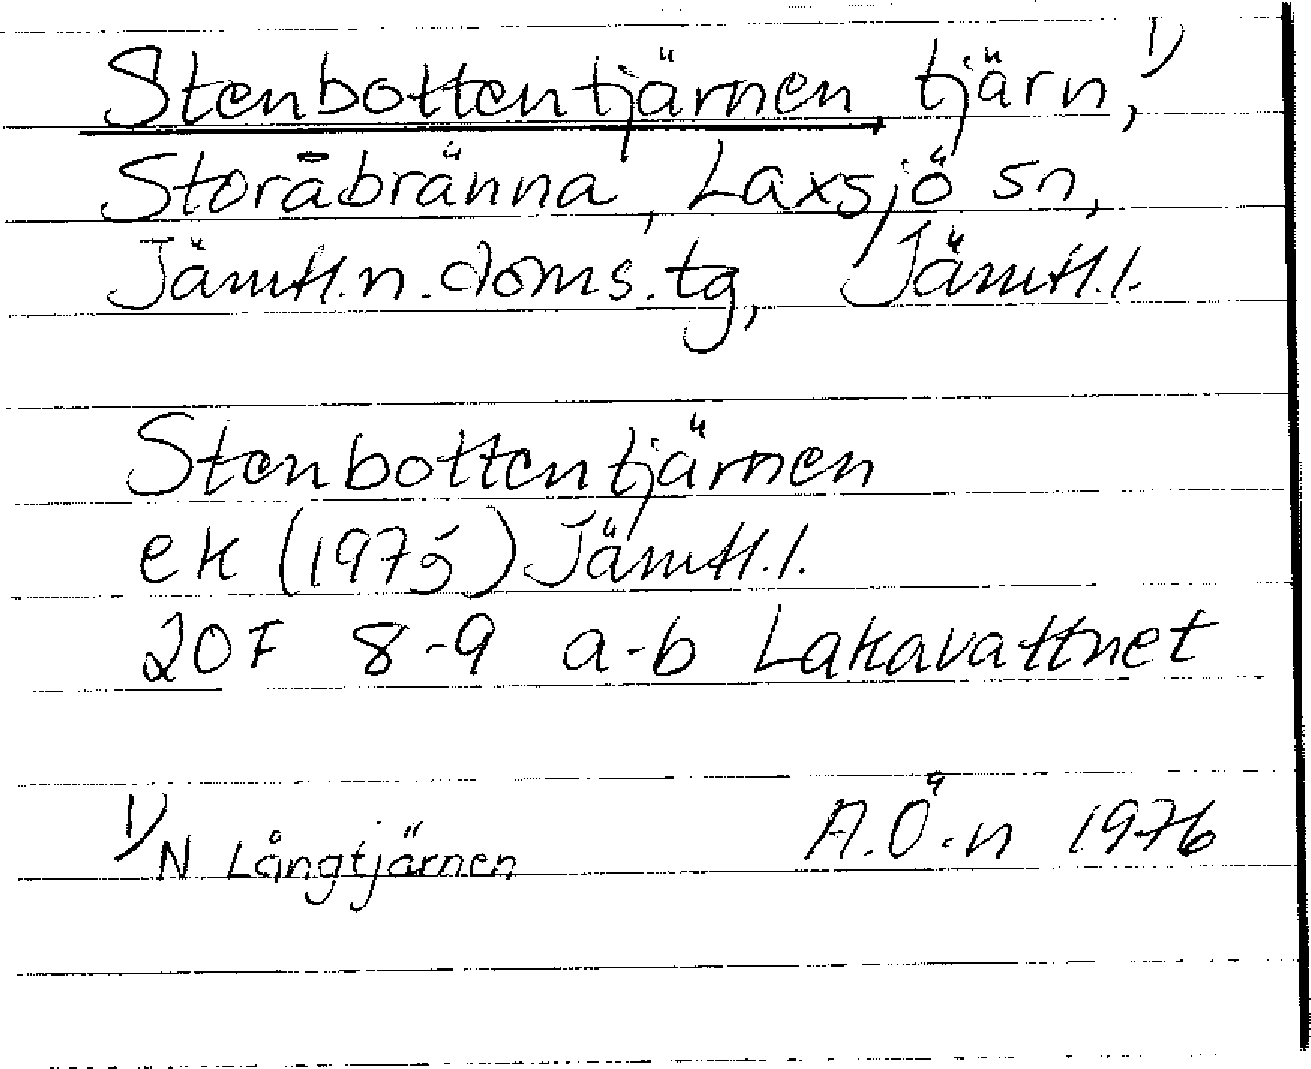 Stenbottentjärnen tjärn,¹⁾
Storåbränna, Laxsjö sn,
Jämtl.n.doms.tg, Jämtl.l.
Stenbottentjärnen
ek (1975) Jämtl.l.
20F 8-9 a-b Lakavattnet
¹⁾N Långtjärnen A.Ö-n 1976